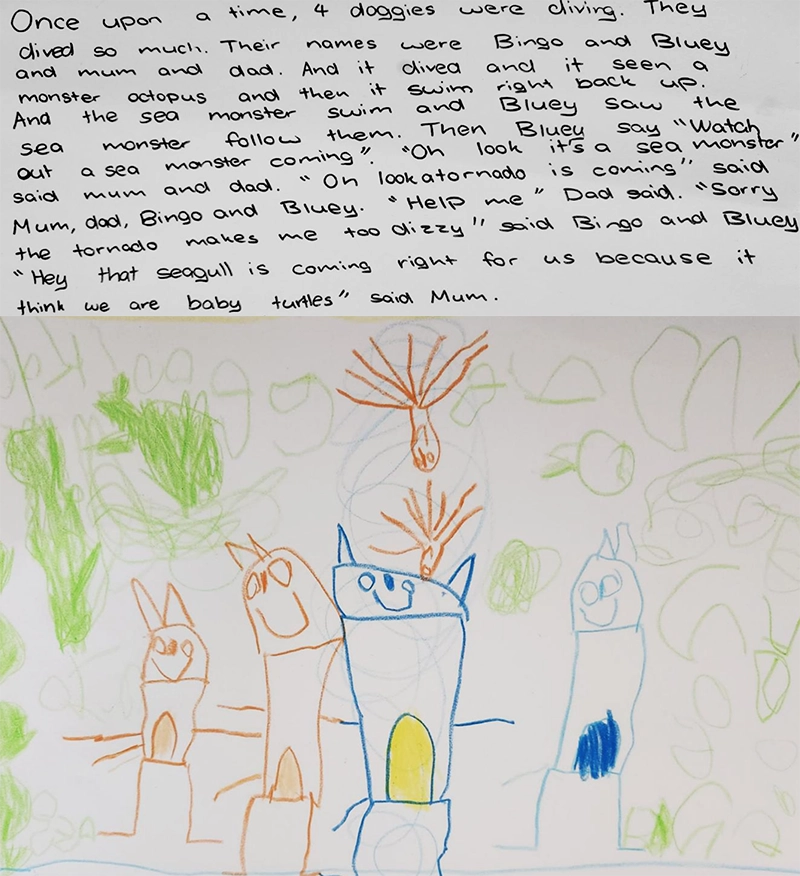 Once upon a time, 4 doggies were diving. They
dived so much. Their names were Bingo and Bluey
and mum and dad. And it dived and it seen a
monster octopus and then it swim right back up.
And the sea monster swim and Bluey saw the
sea monster follow them. Then Bluey say "Watch
out a sea monster coming". "Oh look it's a sea monster"
said mum and dad. "Oh look a tornado is coming" said
Mum, dad, Bingo and Bluey. "Help me" Dad said. "Sorry
the tornado makes me too dizzy" said Bingo and Bluey
"Hey that seagull is coming right for us because it
think we are baby turtles" said Mum.